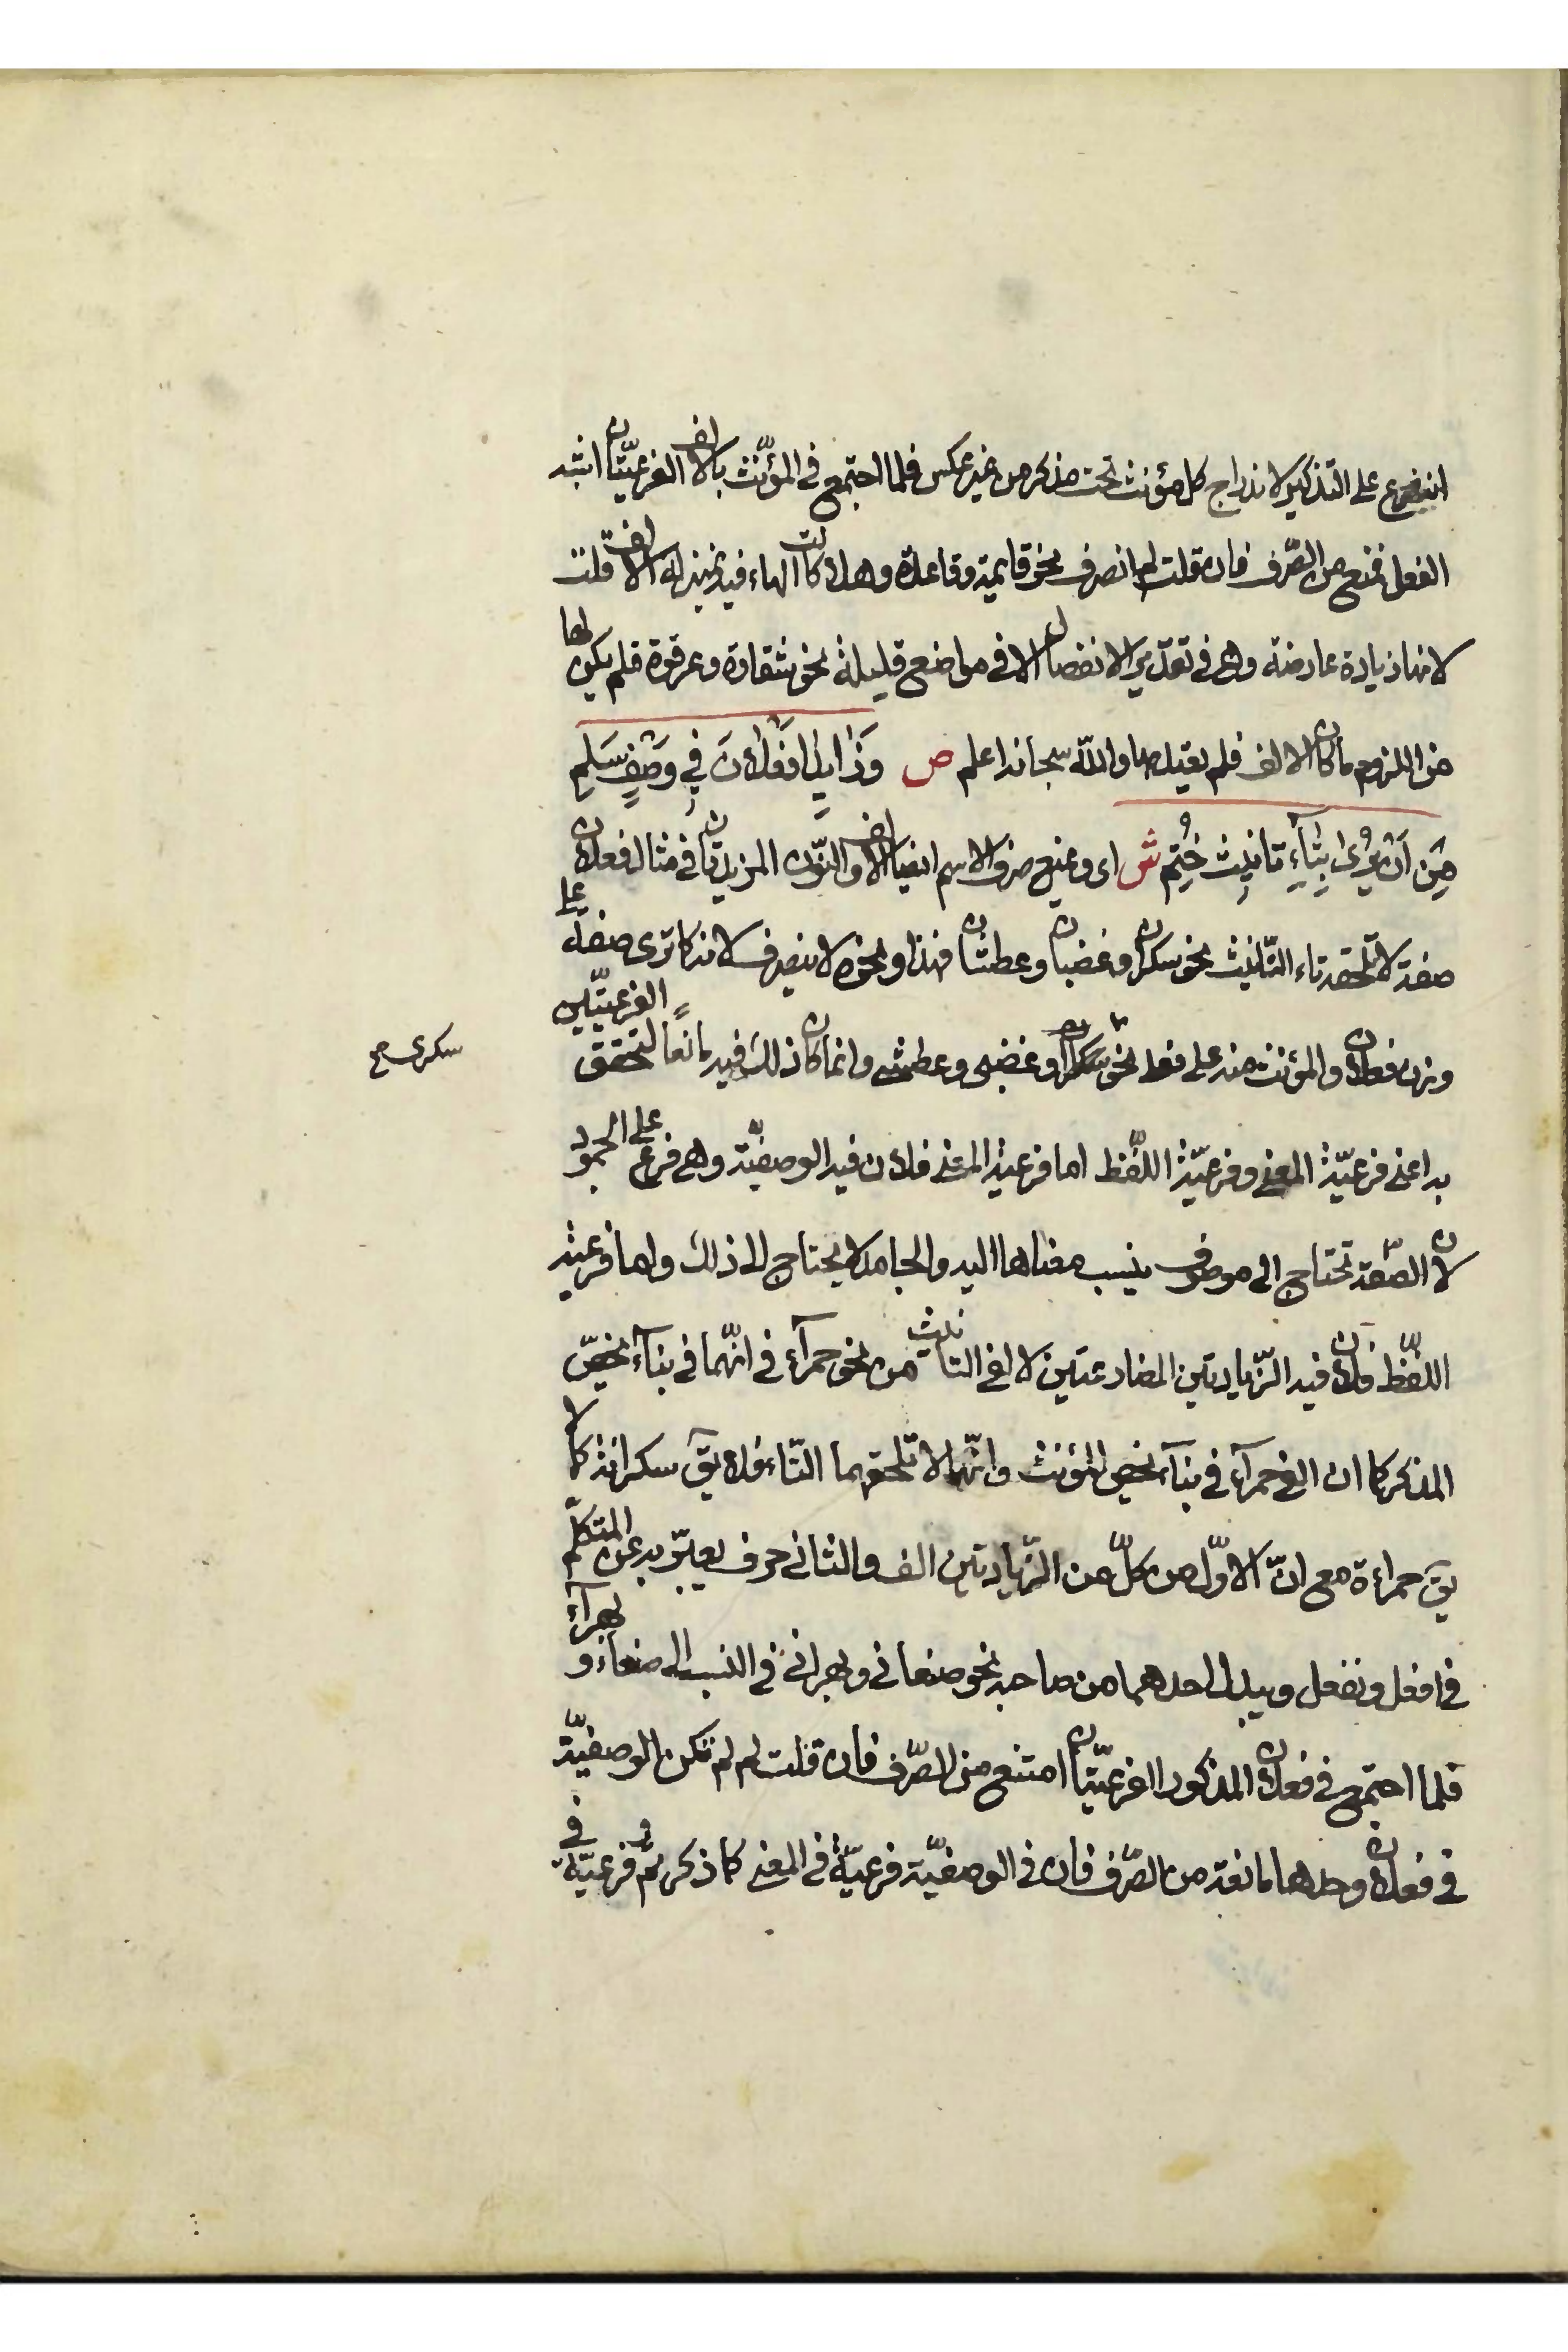 انه فرع على التذكير لاندراج كل مؤنث تحت مذكر من غير عكس فلما اجتمع في المؤنّث بالالف الفرعيّتان اشبه
الفعل فمنع من الصّرف فان قلت لم انصرف نحو قايمة وقاعدة وهلا كانت الهاء فيه بمنزلة الالف قلت
لانها زيادة عارضة وهى في تقدير الانفصال الا في مواضع قليلة نحو شقاوة وعرقوة فلم يكن لها
من اللزوم ما كان للالف فلم يعتد بها والله سبحانه اعلم ص وَزٰايِدٰا فَعْلٰانَ فِي وَصْفٍ سَلِمِ
مِنْ اَنْ يُرٰى بِتٰاءِ تَانِيثٍ خُتِمْ ش اى ويمنع صرف الاسم ايضا الالف والنّون المزيدتان في مثال فعلان
صفة لا تلحقه تاء التّانيث نحو سكران وغضبان وعطشان فهذا ونحوه لا ينصرف لانه كما ترى صفة على
وزن فعلان والمؤنث منه على فعلى نحو سكران وغضبى وعطشى وانما كان ذلك فيه مانعا لتحقق الفرعيّتين
سكرى صح
به اعنى فرعيّة المعنى وفرعيّة اللّفظ اما فرعية المعنى فلان فيه الوصفيّة وهى فرع على الجمود
لان الصّفة تحتاج الى موصوف ينسب معناها اليه والجامد لا يحتاج الى ذلك واما فرعية
اللّفظ فلان فيه الزّيادتين المضارعتين لالفى التانيث من نحو حمرآء في انّهما في بنآء يخصّ
المذكر كما ان الفى حمرآء في بنآء يخص المؤنث وانّهما لا تلحقهما التّاء فلا يق سكرانة كما لا
يق حمراءة مع انّ الاوّل من كلّ من الزّيادتين الف والثانى حرف يعبّر به عن المتكلّم
في افعل ونفعل ويبدل احدهما من صاحبه نحو صنعانى وبهرانى في النسب الى صنعاء و بهرآء
فلما اجتمع في فعلان المذكور الفرعيّتان امتنع من الصّرف فان قلت لم لم تكن الوصفيّة
في فعلان وحدها مانعة من الصّرف فان في الوصفيّة فرعيّة في المعنى كما ذكرتم وفرعيّة في